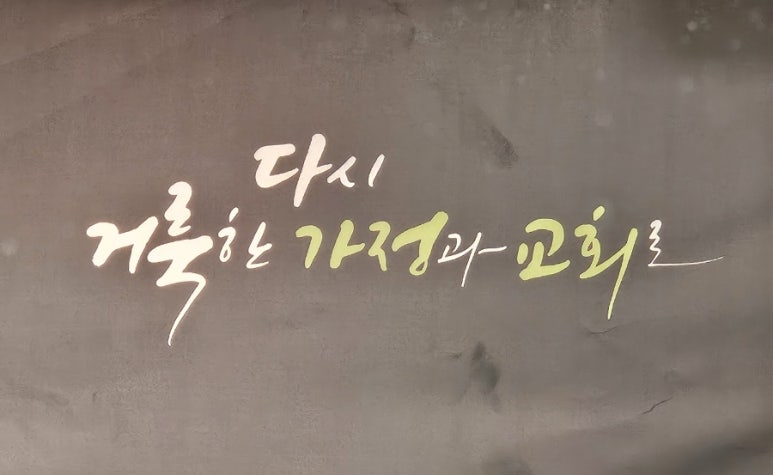 다시
거룩한 가정과 교회로